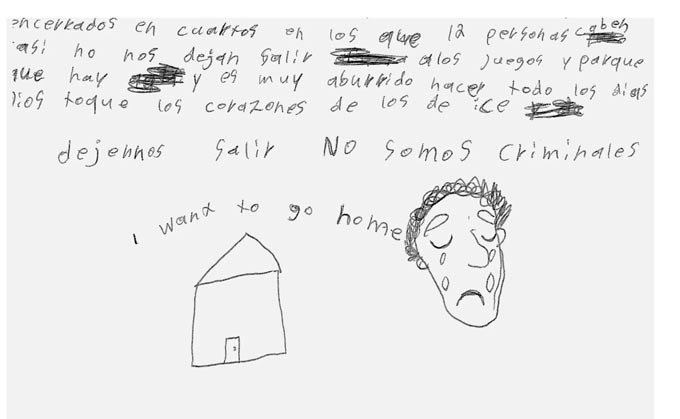 encerrados en cuartos en los que 12 personas caben
asi no nos dejan salir a los juegos y parque
que hay y es muy aburrido hacer todo los dias
Dios toque los corazones de los de ice
dejennos salir NO somos criminales
I want to go home